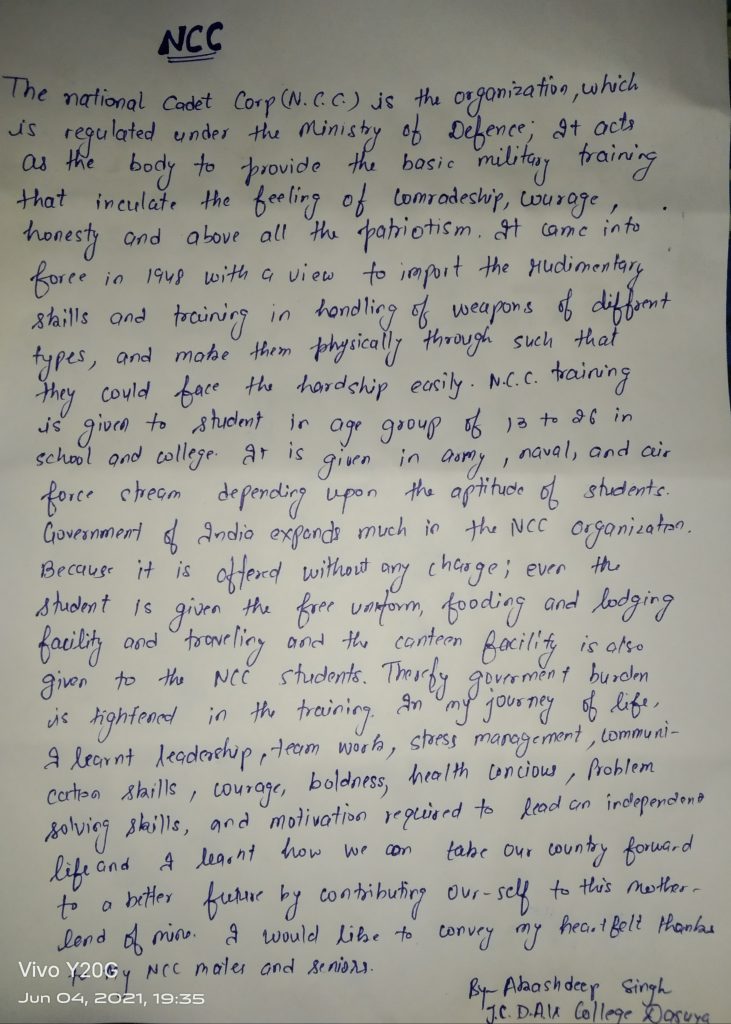 NCC
The national Cadet Corp (N.C.C.) is the organization, which
is regulated under the Ministry of Defence; It acts
as the body to provide the basic military training
that inculate the feeling of comradeship, courage,
honesty and above all the patriotism. It came into
force in 1948 with a view to impart the rudimentary
skills and training in handling of weapons of diffrent
types, and make them physically through such that
they could face the hardship easily. N.C.C. training
is given to student in age group of 13 to 26 in
school and college. It is given in army, naval, and air
force stream depending upon the aptitude of students.
Government of India expands much in the NCC organization.
Because it is offered without any charge; even the
student is given the free uniform, fooding and lodging
facility and traveling and the canteen facility is also
given to the NCC students. Thereby goverment burden
is tightened in the training. In my journey of life,
I learnt leadership, team work, stress management, communi-
cation skills, courage, boldness, health concious, Problem
solving skills, and motivation required to lead an independent
life and I learnt how we can take our country forward
to a better future by contributing our-self to this mother-
land of mine. I would like to convey my heartfelt thanks
to my NCC mates and seniors.
By- Akashdeep Singh
J.C. D.A.V College Dasuya
Vivo Y20G
Jun 04, 2021, 19:35